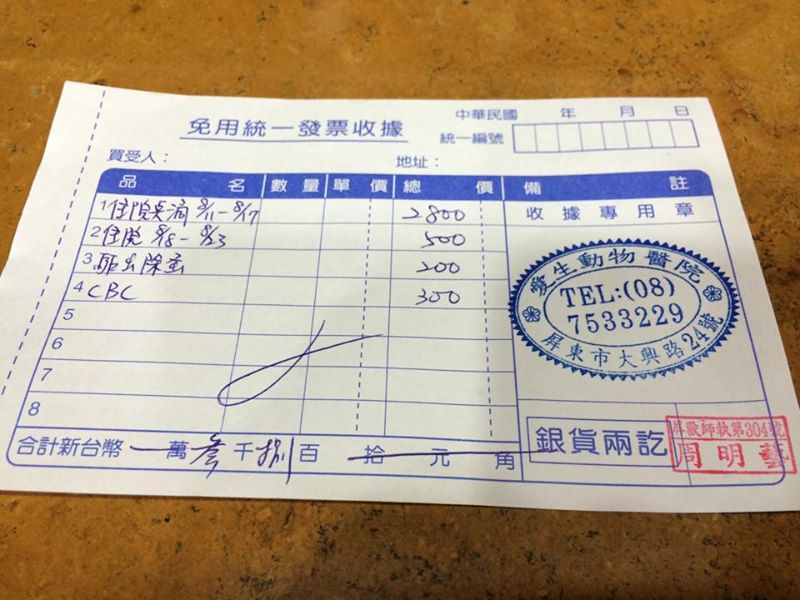 免用統一發票收據
中華民國 年 月 日
統一編號
買受人：
地址：
品名 數量 單價 總價 備註
1 住院點滴 8/11-8/17 2800
2 住院 8/18-8/23 500
3 驅蟲除蚤 200
4 CBC 300
5
6
7
8
收據專用章
愛生動物醫院
TEL:(08)
7533229
屏東市大興路24號
合計新台幣 萬 叁 千 捌 百 拾 元 角
銀貨兩訖
屏獸師執第304號
周明藝